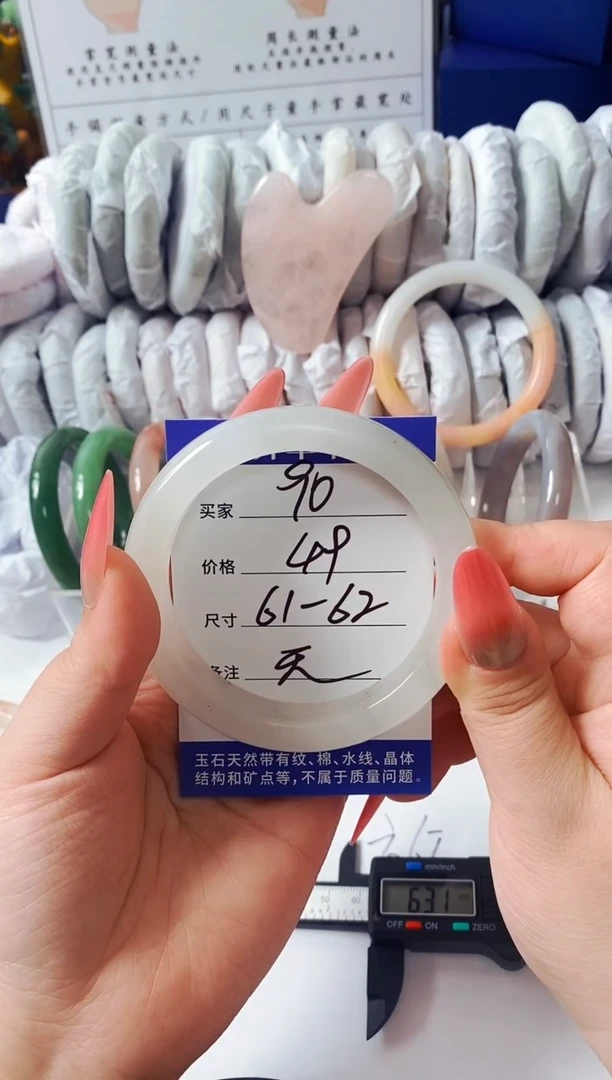 掌宽测量法
周长测量法
手镯测量方式/用尺子量手掌最宽处
买家 90
价格 49
尺寸 61-62
备注 天
玉石天然带有纹、棉、水线、晶体
结构和矿点等,不属于质量问题。
mm/inch
50 60
6.31
OFF ON ZERO